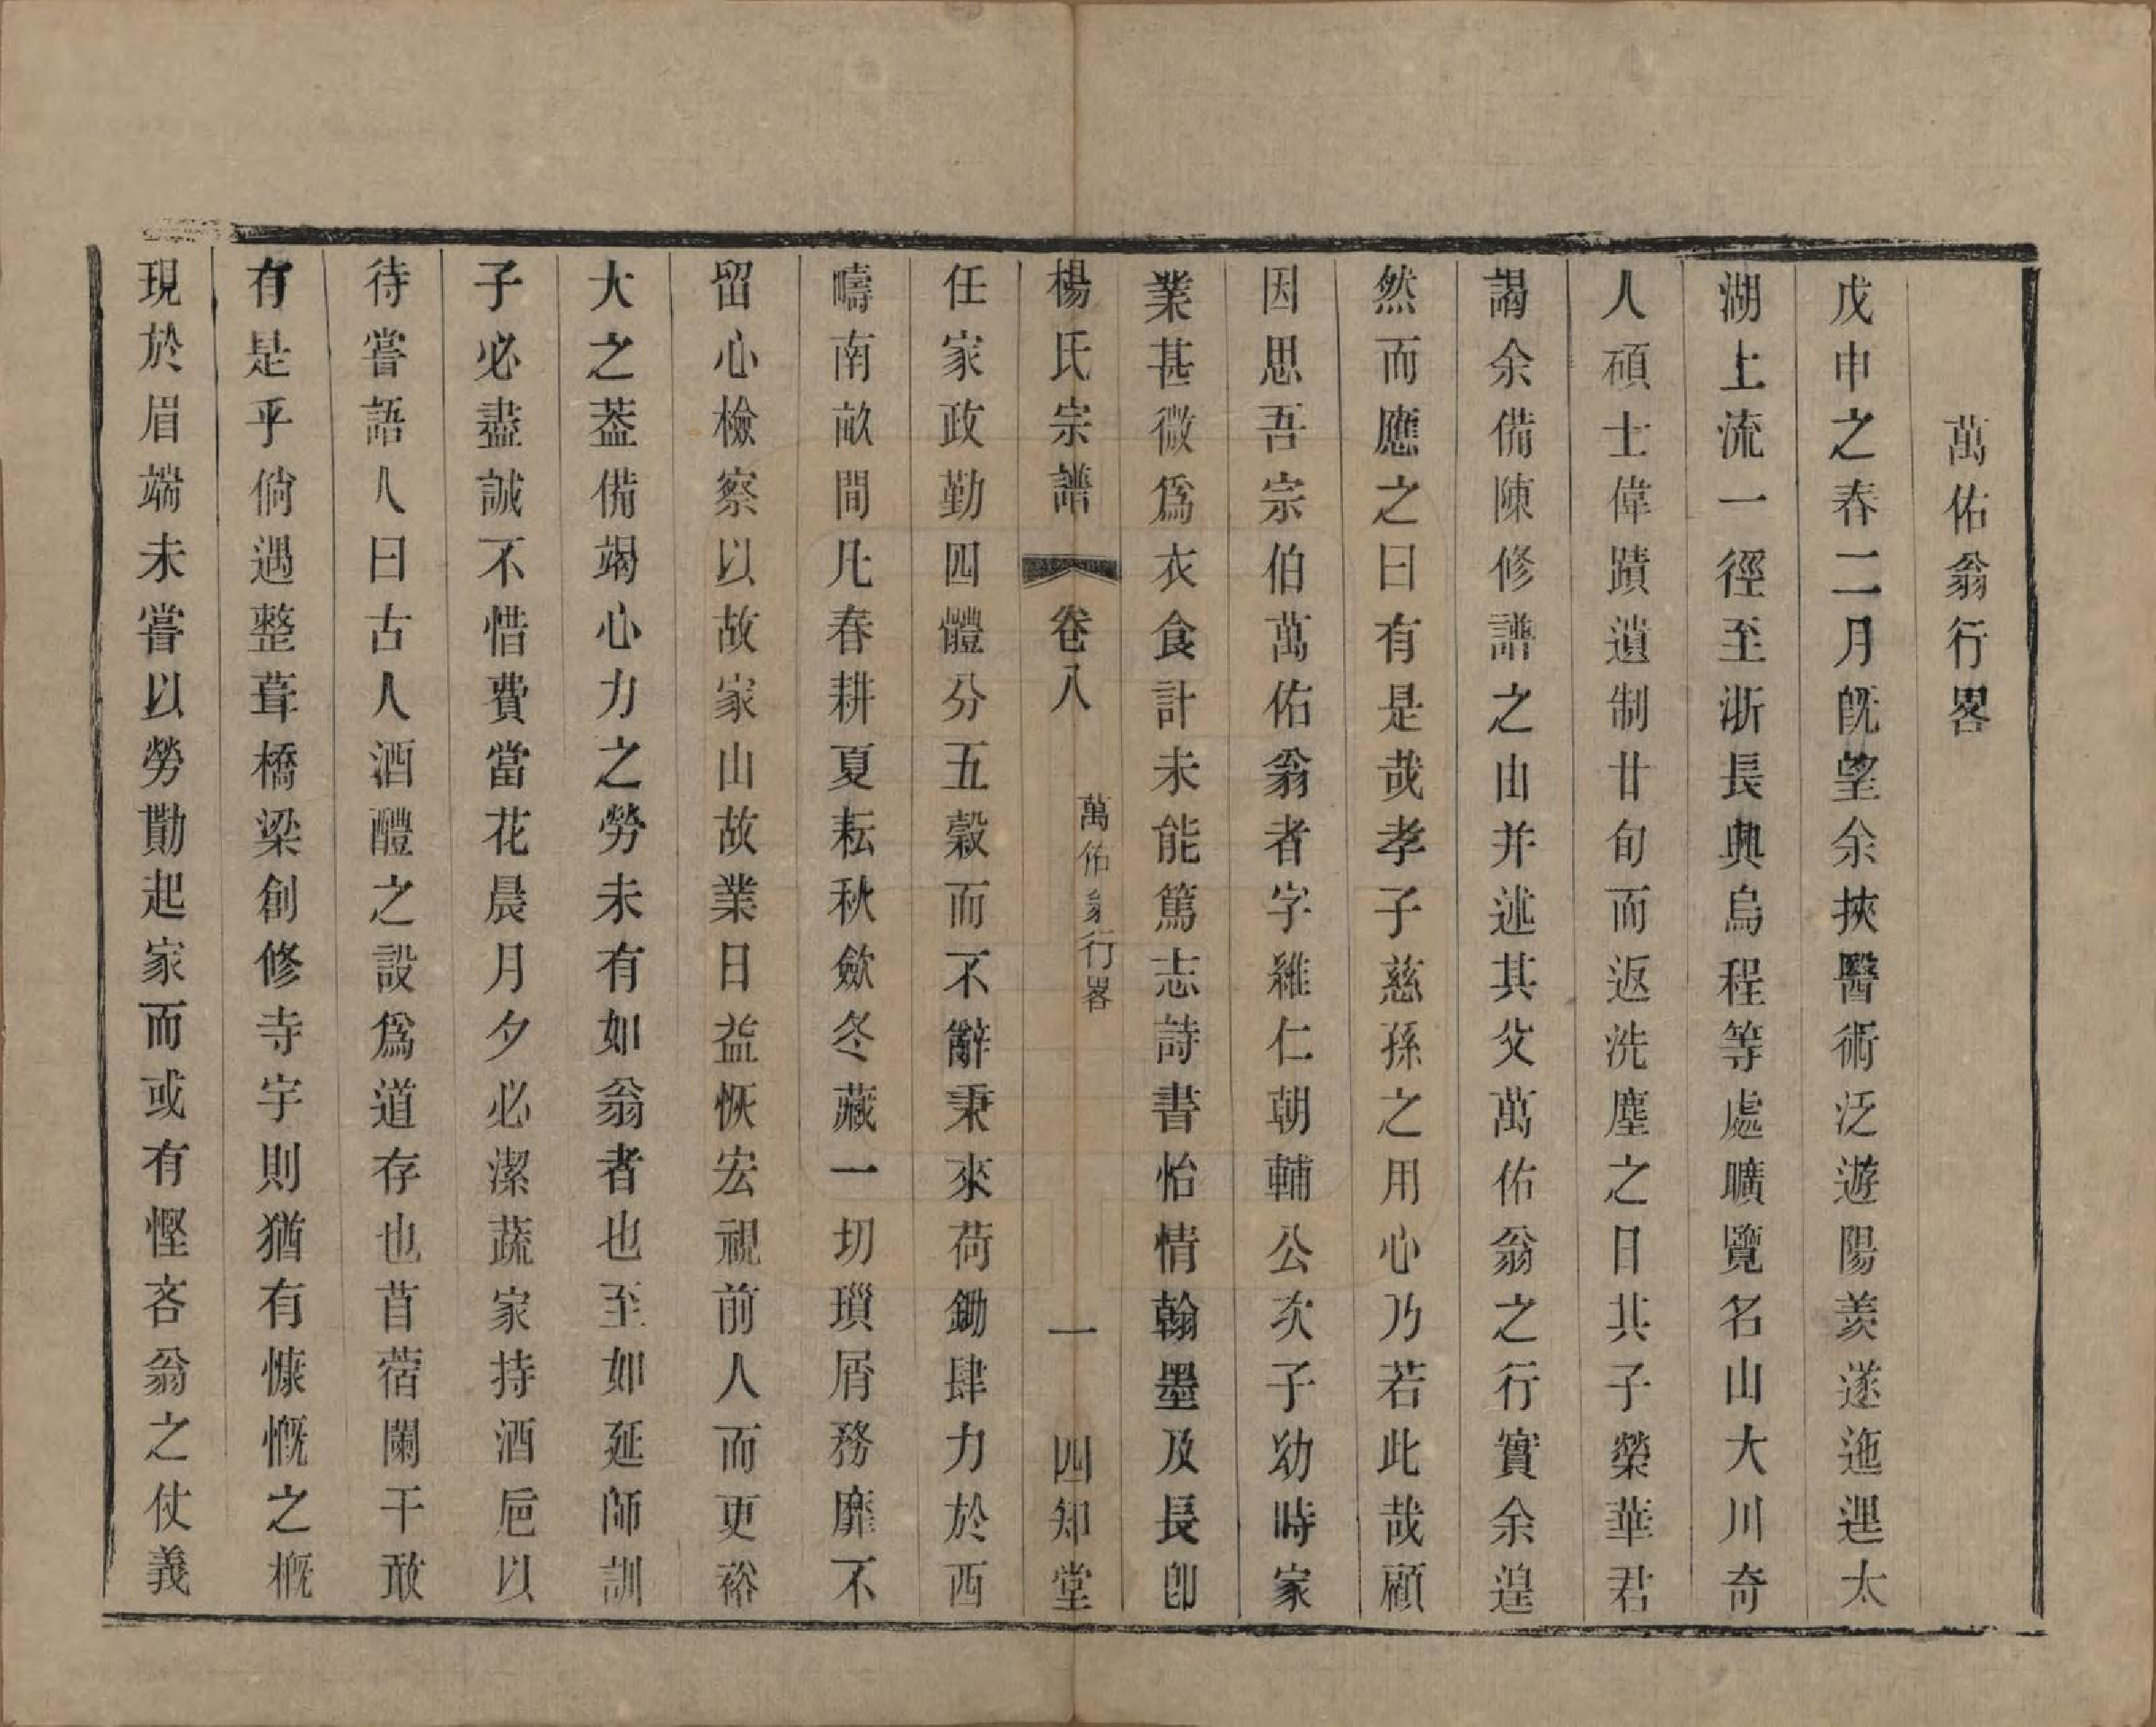 萬佑翁行畧
戊申之春二月旣望余挾醫術泛遊陽羨遂迤邐太
湖上流一徑至浙長興烏程等處曠覽名山大川奇
人碩士偉蹟遺制廿旬而返洗塵之日共子榮華君
謁余備陳修譜之由并述其父萬佑翁之行實余遑
然而應之曰有是哉孝子慈孫之用心乃若此哉顧
因思吾宗伯萬佑翁者字維仁朝輔公次子幼時家
業甚微爲衣食計未能篤志詩書怡情翰墨及長卽
楊氏宗譜 卷八 萬佑翁行畧 一 四知堂
任家政勤四體分五榖而不辭秉來荷鋤肆力於西
疇南畝間凡春耕夏耘秋歛冬藏一切瑣屑務靡不
留心檢察以故家山故業日益恢宏視前人而更裕
大之葢備竭心力之勞未有如翁者也至如延師訓
子必盡誠不惜費當花晨月夕必潔蔬家持酒巵以
待嘗語人曰古人酒醴之設爲道存也苜蓿闌干敢
有是乎倘遇整葺橋梁創修寺宇則猶有慷慨之槪
現於眉端未嘗以勞勩起家而或有慳吝翁之仗義